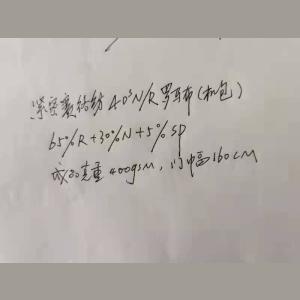 紧密赛络纺40SN/R罗马布(机包)
65%R+30%N+5%SP
成品克重400gsm,门幅160CM